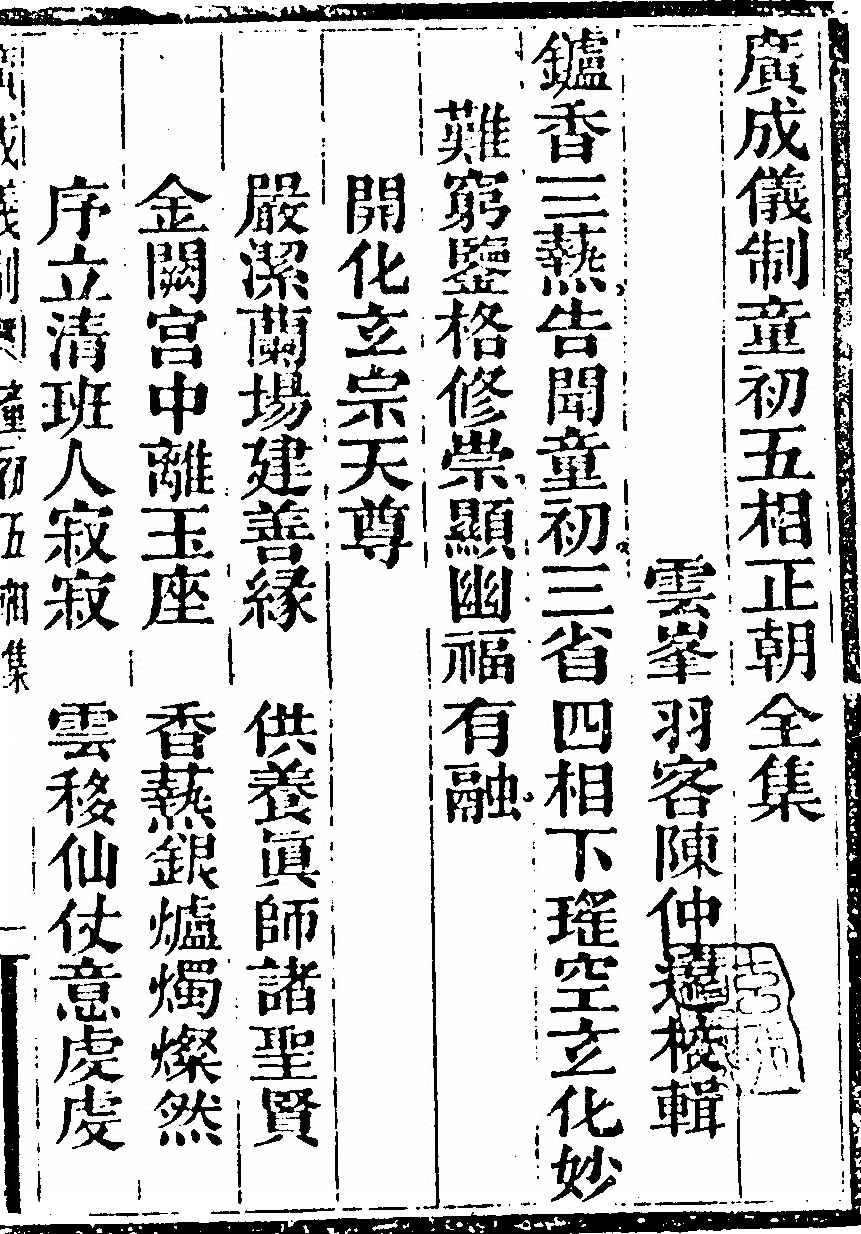 廣成儀制童初五相正朝全集
雲峯羽客陳仲遠校輯
鑪香三爇告聞童初三省四相下瑤空玄化妙
難窮鑒格修崇顯幽福有融
開化玄宗天尊
嚴潔蘭場建善緣 供養眞師諸聖賢
金闕宮中離玉座 香爇銀爐燭燦然
序立清班人寂寂 雲移仙仗意虔虔
廣成儀制 童初五相集 一